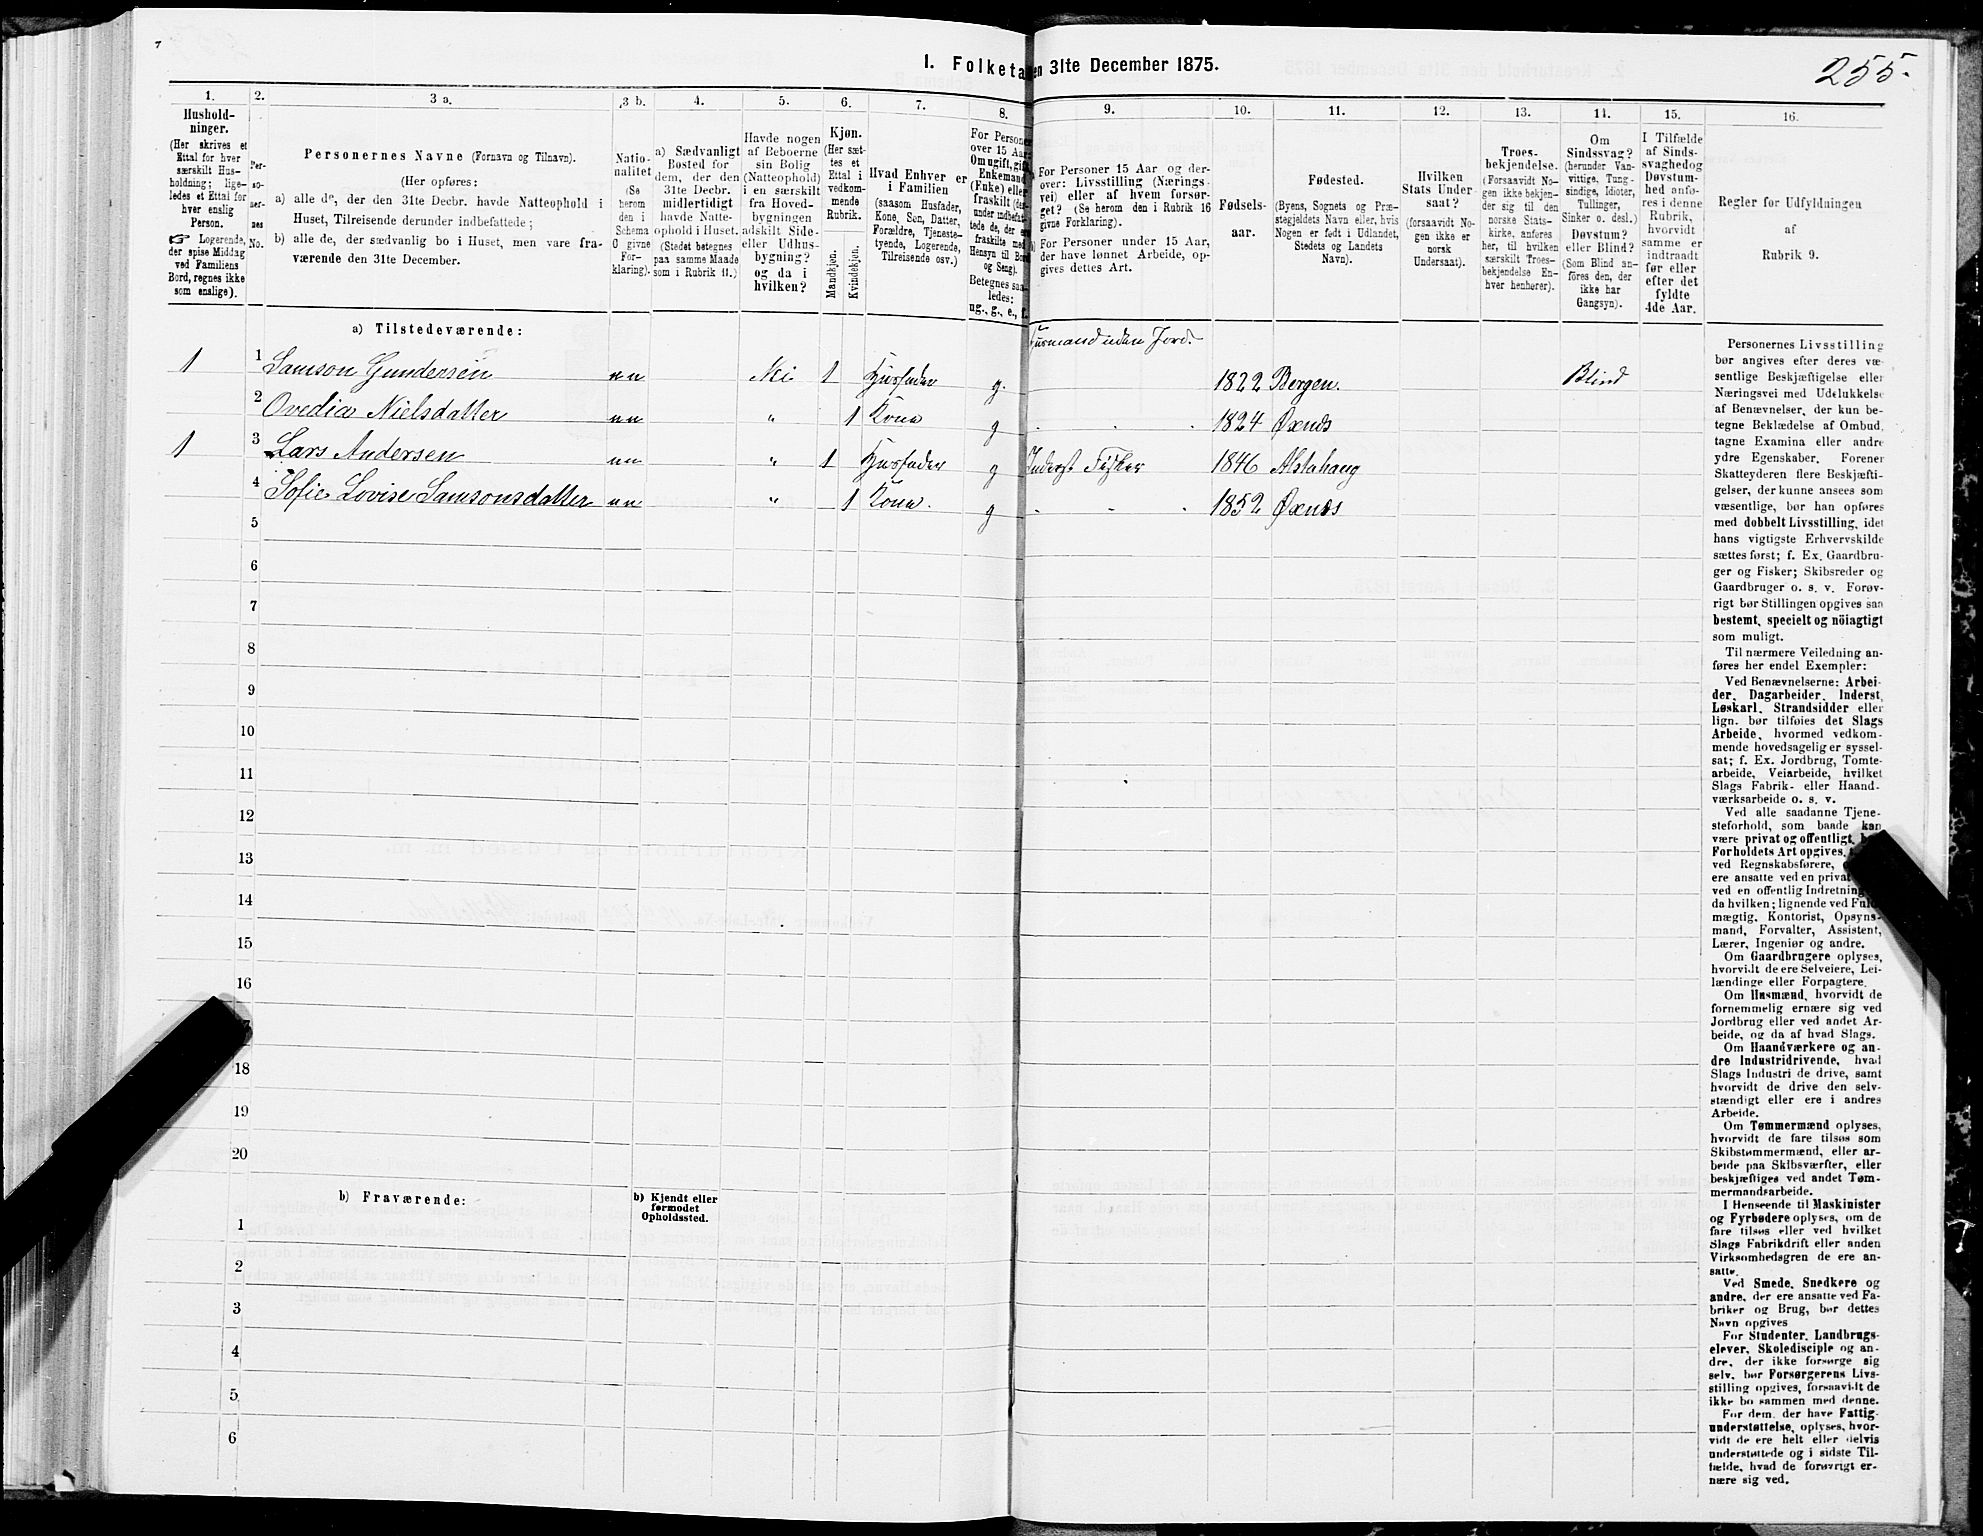 7
255.
I. Folketa en 31te December 1875.
1. 2. 3 a. 3 b. 4. 5. 6. 7. 8. 9. 10. 11. 12. 13. 14. 15. 16.
Hushold-
ninger.
(Her skrives et
Ettal for hver
særskilt Hus-
holdning; lige-
ledes et Ettal for
hver enslig
Person.
☞ Logerende,
der spise Middag
ved Familiens
Bord, regnes ikke
som enslige).
Per-
so-
ner-
nes
No.
Personernes Navne (Fornavn og Tilnavn).
(Her opføres:
a) alle de, der den 31te Decbr. havde Natteophold i
Huset, Tilreisende derunder indbefattede;
b) alle de, der sædvanlig bo i Huset, men vare fra-
værende den 31te December.
Natio-
nalitet
(Se
herom
den i
Schema
O givne
For-
klaring).
a) Sædvanligt
Bosted for
dem, der den
31te Decbr.
midlertidigt
havde Natte-
ophold i Huset.
(Stedet betegnes
paa samme Maade
som i Rubrik 11.)
Havde nogen
af Beboerne
sin Bolig
(Natteophold)
i en særskilt
fra Hoved-
bygningen
adskilt Side-
eller Udhus-
bygning?
og da i
hvilken?
Kjøn.
(Her sæt-
tes et
Ettal i
vedkom-
mende
Rubrik.
Mandkjøn.
Kvindekjøn.
Hvad Enhver er
i Familien
(saasom Husfader,
Kone, Søn, Datter,
Forældre, Tjeneste-
tyende, Logerende,
Tilreisende osv.)
For Personer
over 15 Aar
Om ugift, gift
Enkemand
(Enke) eller
fraskilt (der-
under indbefat-
tede de, der ere
fraskilte med
Hensyn til Bord
og Seng).
Betegnes saa-
ledes:
ug., g., e., f.
For Personer 15 Aar og der-
over: Livsstilling (Nærings-
vei) eller af hvem forsør-
get? (Se herom den i Rubrik 16
givne Forklaring).
b) For Personer under 15 Aar,
der have lønnet Arbeide, op-
gives dettes Art.
Fødsels-
aar.
Fødested.
(Byens, Sognets og Præ-
stegjeldets Navn eller, hvis
Nogen er født i Udlandet,
Stedets og Landets
Navn).
Hvilken
Stats Under-
saat?
(forsaavidt No-
gen ikke er
norsk
Undersaat).
Troes-
bekjendelse.
(Forsaavidt No-
gen ikke bekjen-
der sig til den
norske Stats-
kirke, anføres
her, til hvilken
særskilt Troes-
bekjendelse En-
hver henhører).
Om
Sindssvag?
(herunder Van-
vittige, Tung-
sindige, Idioter,
Tullinger,
Sinker o. desl.)
Døvstum?
eller Blind?
(Som Blind an-
føres den, der
ikke har
Gangsyn).
I Tilfælde
af Sinds-
svaghed og
Døvstum-
hed anfø-
res i denne
Rubrik,
hvorvidt
samme er
indtraadt
før eller
efter det
fyldte
4de Aar.
Regler for Udfyldningen
af
Rubrik 9.
a) Tilstedeværende:
Husmand uden Jord.
1 1 Samson Gundersen nn Nei 1 Husfader g. 1822 Bergen. Blind
2 Ovedia Nielsdatter nn " 1 Kone g 1824 Øxnæs
1 3 Lars Andersen nn " 1 Husfader g Inderst Fisker 1846 Alstahaug
4 Sofie Lovise Samsonsdatter nn " 1 Kone. g 1852 Øxnæs
5
6
7
8
9
10
11
12
13
14
15
16
18
19
20
b) Fraværende:
b) Kjendt eller
formodet
Opholdssted.
1
2
3
4
5
6
Personernes Livsstilling
bør angives efter deres væ-
sentlige Beskjæftigelse eller
Næringsvei med Udelukkelse
af Benævnelser, der kun be-
tegne Beklædelse af Ombud,
tagne Examina eller andre
ydre Egenskaber. Forener
Skatteyderen flere Beskjæfti-
gelser, der kunne ansees som
væsentlige, bør han opføres
med dobbelt Livsstilling, idet
hans vigtigste Erhvervskilde
sættes først; f. Ex. Gaardbru-
ger og Fisker; Skibsreder og
Gaardbruger o. s. v. Forøv-
rigt bør Stillingen opgives saa
bestemt, specielt og nöiagtigt
som muligt.
Til nærmere Veiledning an-
føres her endel Exempler:
Ved Benævnelserne: Arbei-
der, Dagarbeider, Inderst,
Løskarl, Strandsidder eller
lign. bør tilføies det Slags
Arbeide, hvormed vedkom-
mende hovedsagelig er syssel-
sat; f. Ex. Jordbrug, Tomte-
arbeide, Veiarbeide, hvilket
Slags Fabrik- eller Haand-
værksarbeide o. s. v.
Ved alle saadanne Tjene-
steforhold, som baade kan
være privat og offentligt,
Forholdets Art opgives,
ved Regnskabsførere,
ere ansatte ved en privat
ved en offentlig Indretning
da hvilken; lignende ved Fuld-
mægtig, Kontorist, Opsyns-
mand, Forvalter, Assistent,
Lærer, Ingeniør og andre.
Om Gaardbrugere oplyses,
hvorvidt de ere Selveiere, Lei-
lændinge eller Forpagtere.
Om Husmænd, hvorvidt de
fornemmelig ernære sig ved
Jordbrug eller ved andet Ar-
beide, og da af hvad Slags.
Om Haandværkere og an-
dre Industridrivende, hvad
Slags Industri de drive, samt
hvorvidt de drive den selv-
stændigt eller ere i andres
Arbeide.
Om Tømmermænd oplyses,
hvorvidt de fare tilsøs som
Skibstømmermænd, eller ar-
beide paa Skibsværfter, eller
beskjæftiges ved andet Tøm-
mermandsarbeide.
I Henseende til Maskinister
og Fyrbødere oplyses, om de
fare tilsøs eller ved hvilket
Slags Fabrikdrift eller anden
Virksomhedsgren de ere an-
satte.
Ved Smede, Snedkere og
andre, der ere ansatte ved Fa-
briker og Brug, bør dettes
Navn opgives
For Studenter, Landbrugs-
elever, Skoledisciple og an-
dre, der ikke forsørge sig
selv, bør Forsørgerens Livs-
stilling opgives, forsaavidt de
ikke bo sammen med denne.
For dem, der have Fattig-
understøttelse, oplyses, hvor-
vidt de ere helt eller delvis
understøttede og i sidste Til-
fælde, hvad de forøvrigt er-
nære sig ved.